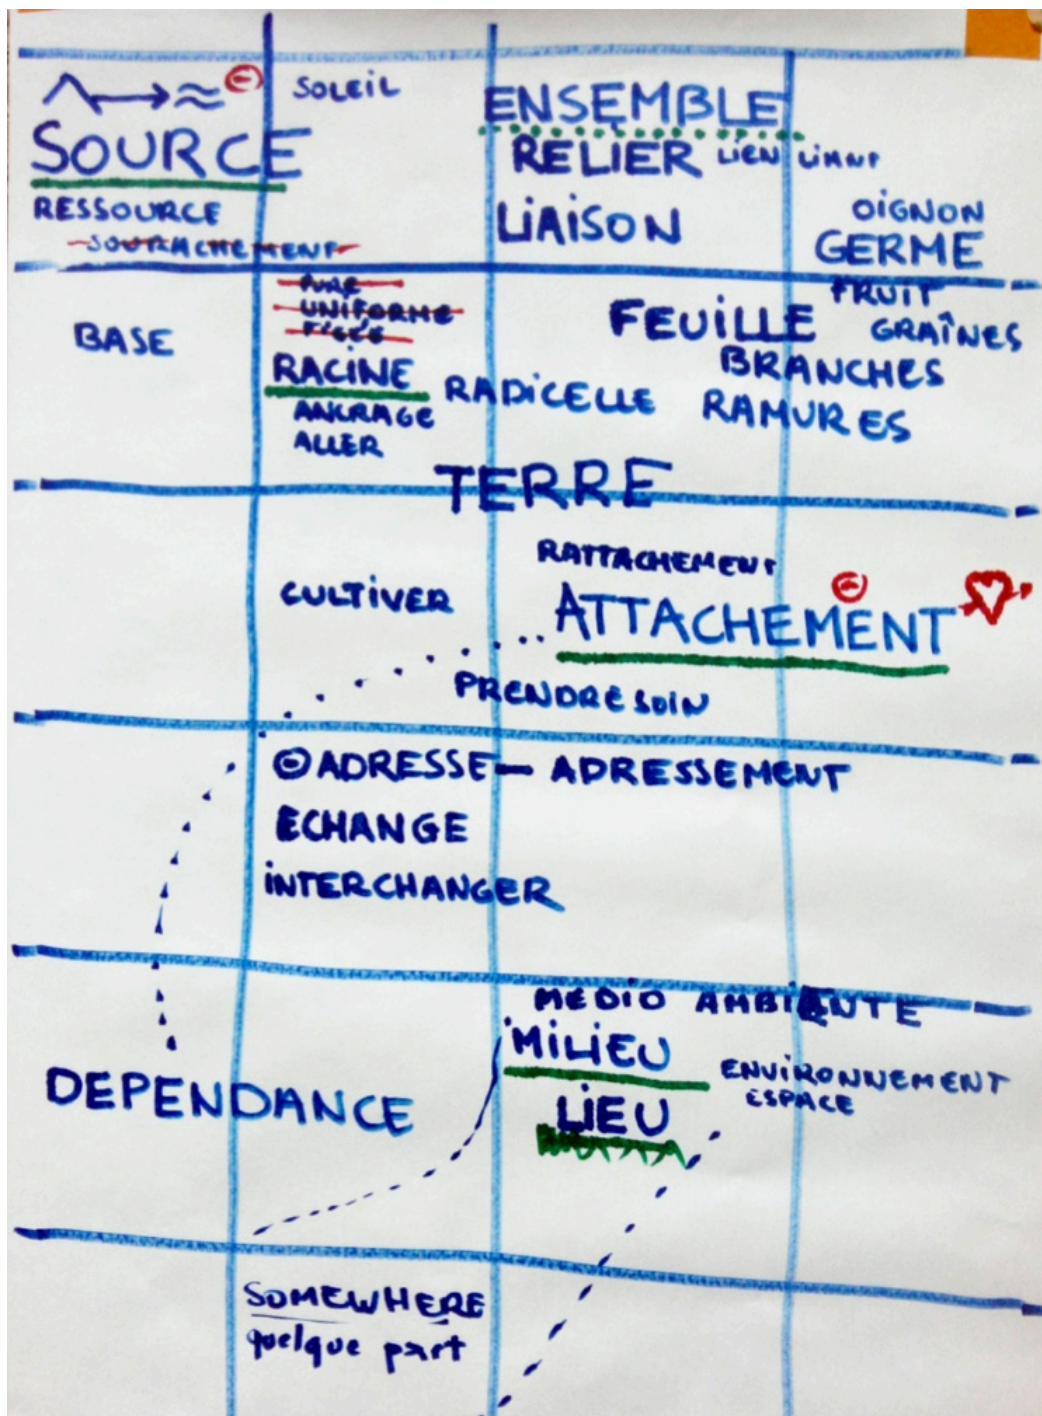 SOLEIL
SOURCE
RESSOURCE
ENSEMBLE
RELIER LIEN LIANT
LIAISON
OIGNON
GERME
FRUIT
GRAÎNES
BASE
PURE
UNIFORME
FIGÉE
RACINE
ANCRAGE
ALLER
RADICELLE
FEUILLE
BRANCHES
RAMURES
TERRE
RATTACHEMENT
CULTIVER
ATTACHEMENT
PRENDRE SOIN
ADRESSE - ADRESSEMENT
ECHANGE
INTERCHANGER
MEDIO AMBIENTE
MILIEU
ENVIRONNEMENT
ESPACE
DEPENDANCE
LIEU
SOMEWHERE
quelque part